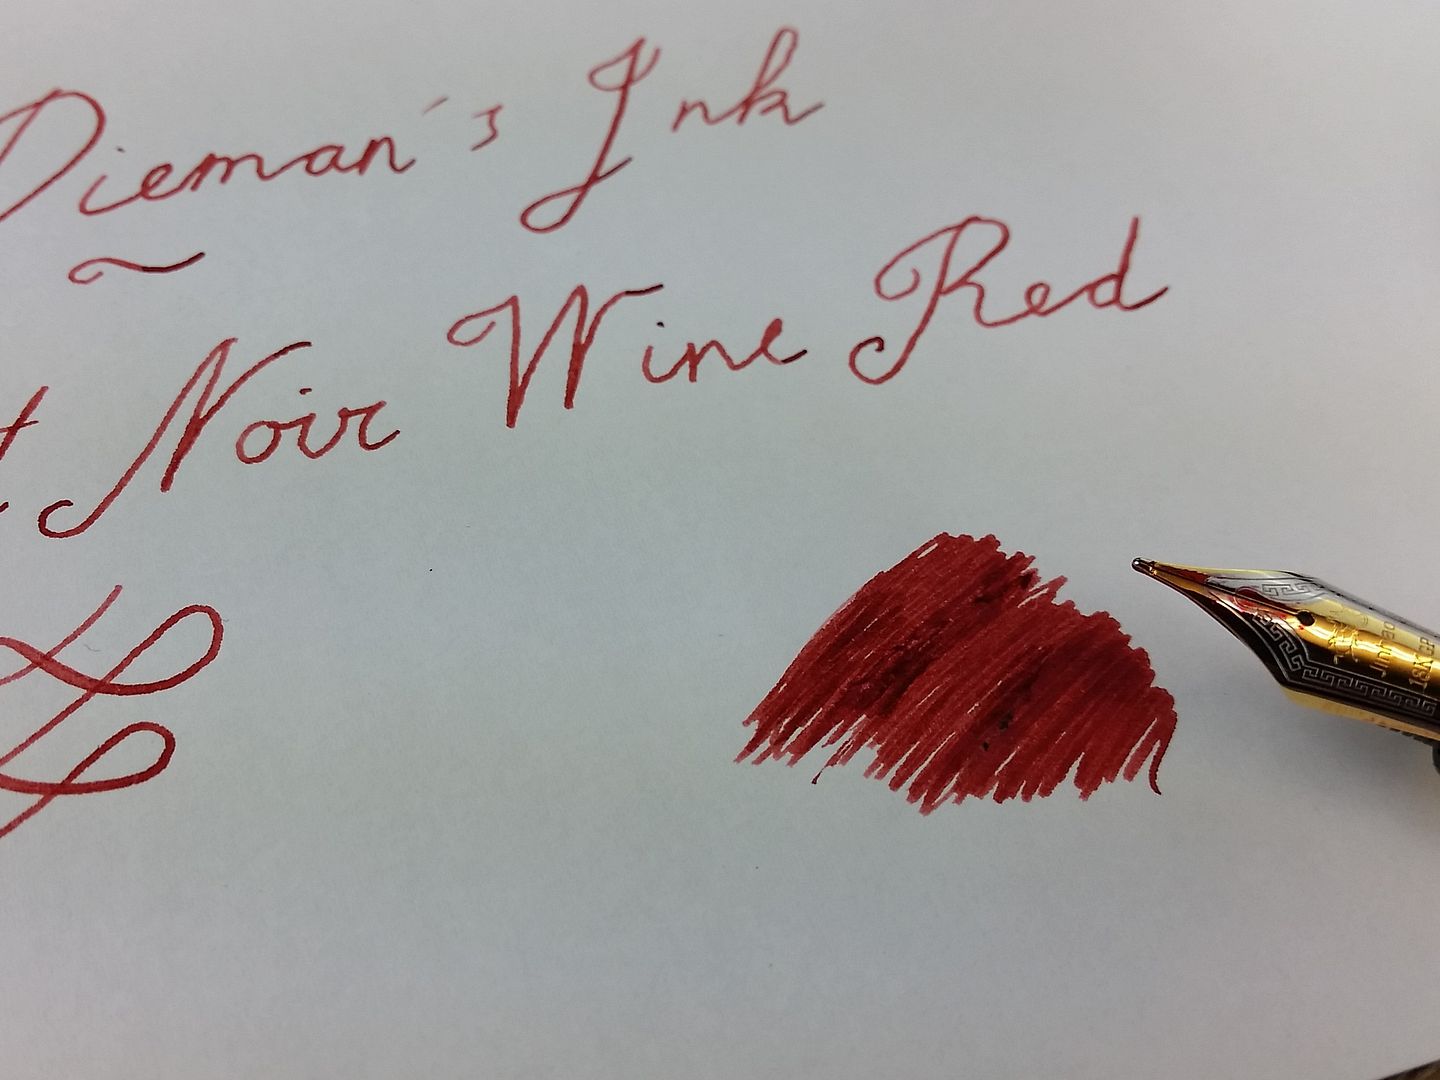 Dieman's Ink
~
Noir Wine Red
Jinhao
18KGP